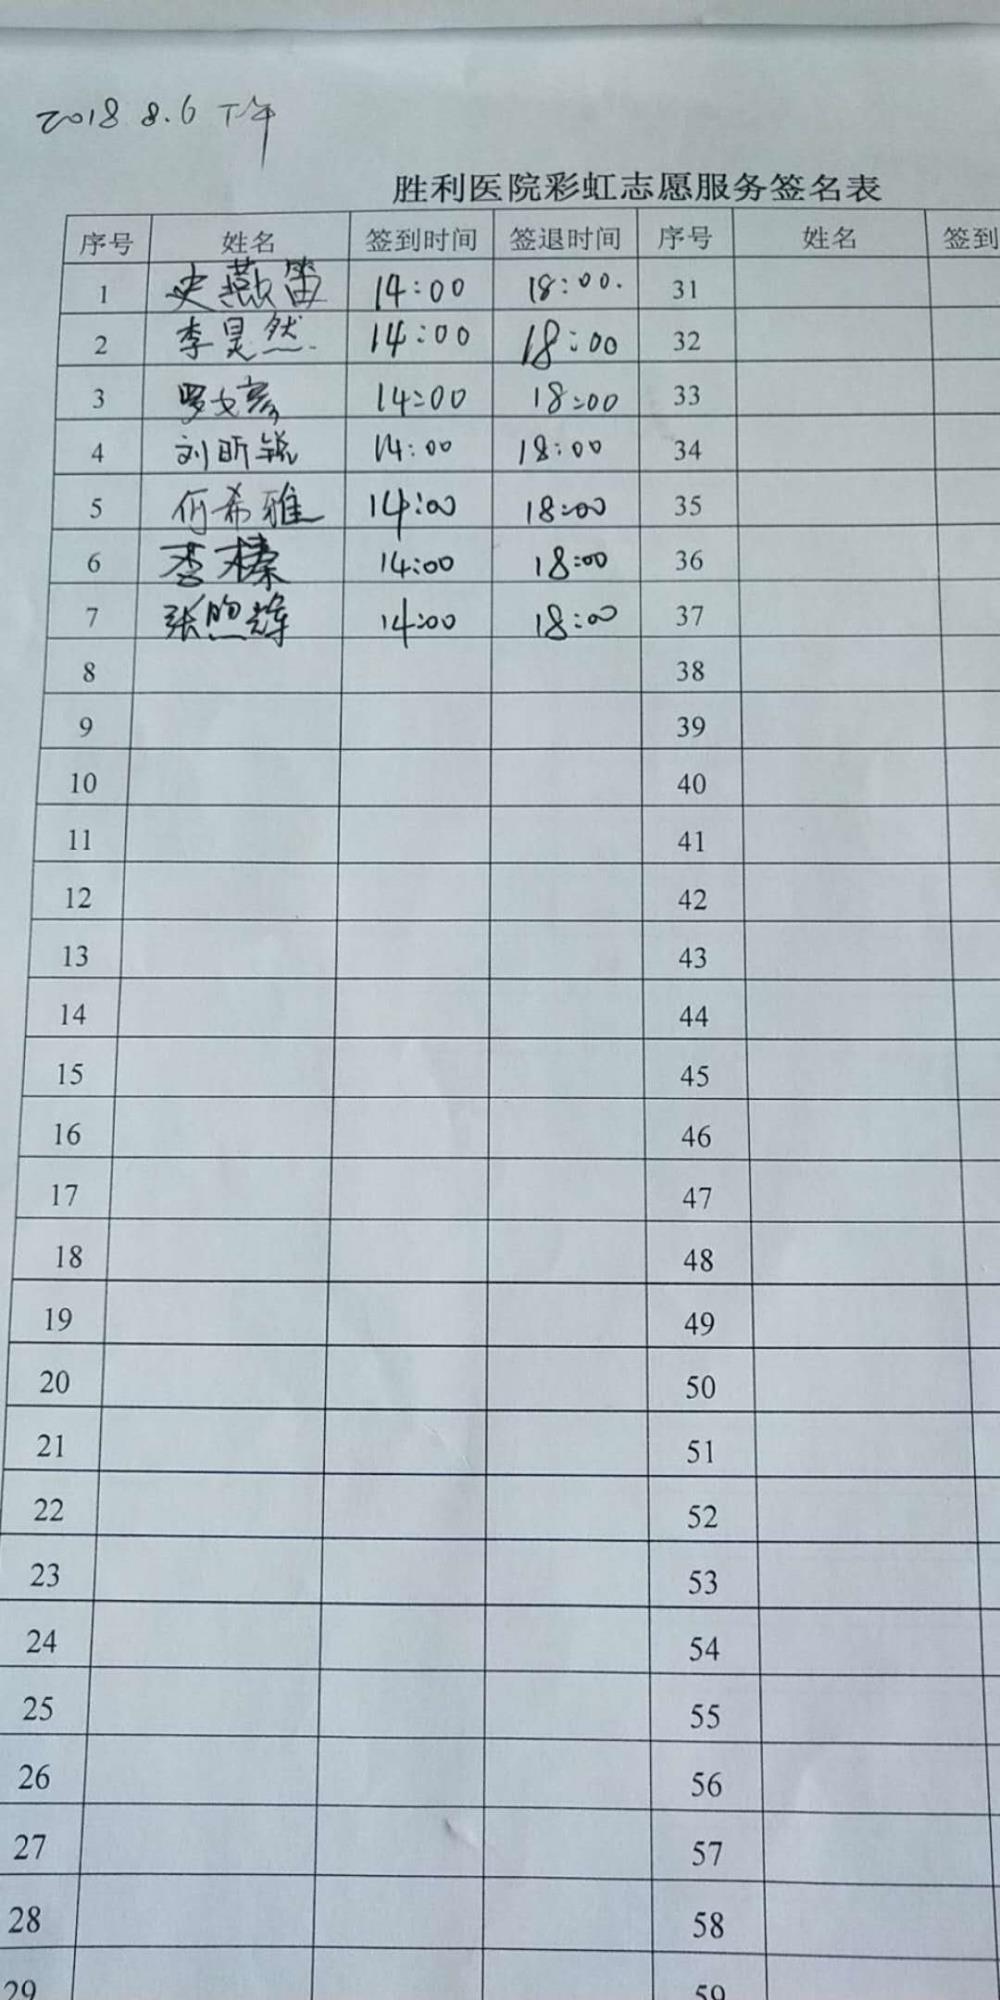 2018 8.6 下午
胜利医院彩虹志愿服务签名表
序号 姓名 签到时间 签退时间 序号 姓名 签到
1 史燕笛 14:00 18:00. 31
2 李昊然. 14:00 18:00 32
3 罗文彦 14:00 18:00 33
4 刘昕锐 14:00 18:00 34
5 何希雅 14:00 18:00 35
6 李榛 14:00 18:00 36
7 张煦辉 14:00 18:00 37
8 38
9 39
10 40
11 41
12 42
13 43
14 44
15 45
16 46
17 47
18 48
19 49
20 50
21 51
22 52
23 53
24 54
25 55
26 56
27 57
28 58
29 59